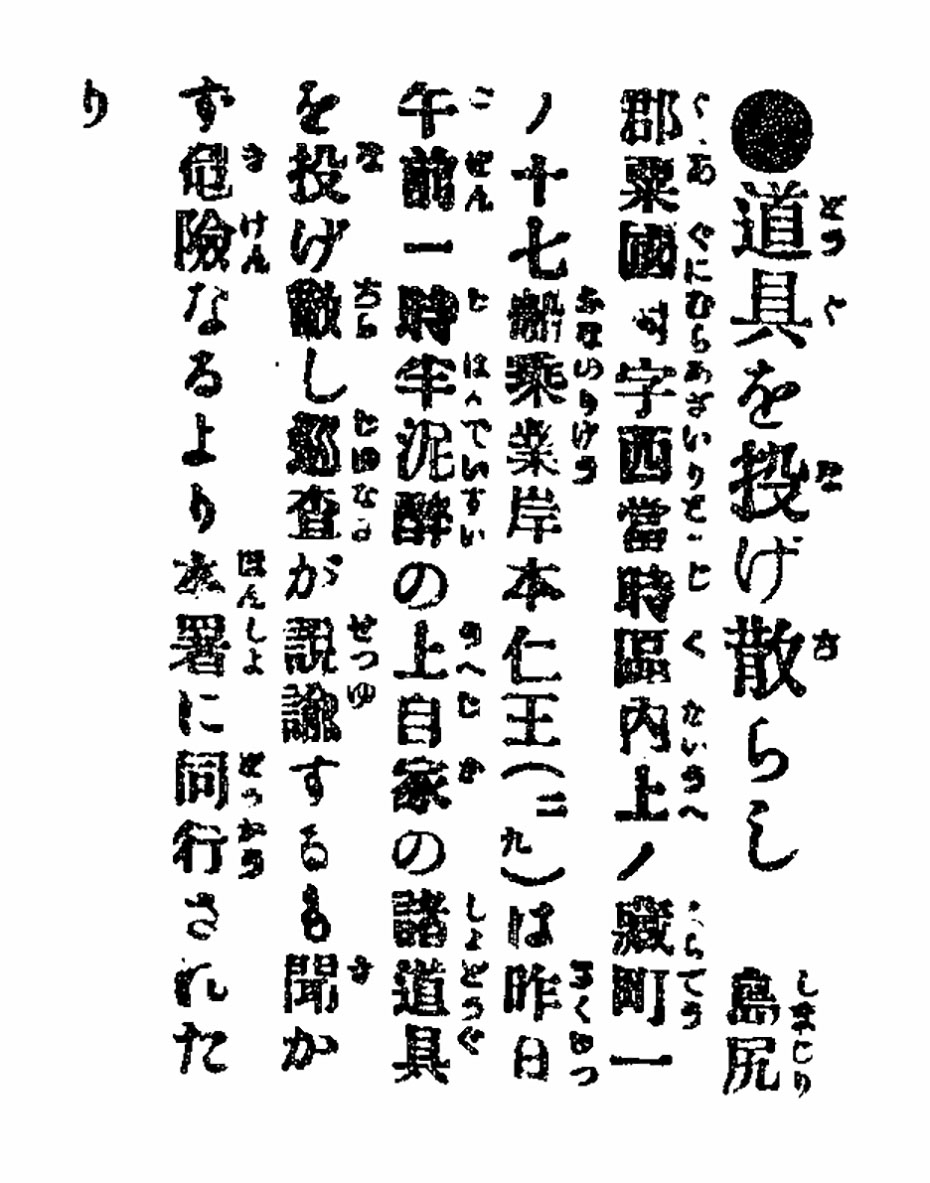 ●道具を投げ散らし 島尻
郡粟國村字西當時區内上ノ藏町一
ノ十七船乗業岸本仁王(二九)は昨日
午前一時半泥醉の上自家の諸道具
を投げ散し巡査が説諭するも聞か
ず危險なるより本署に同行された
り